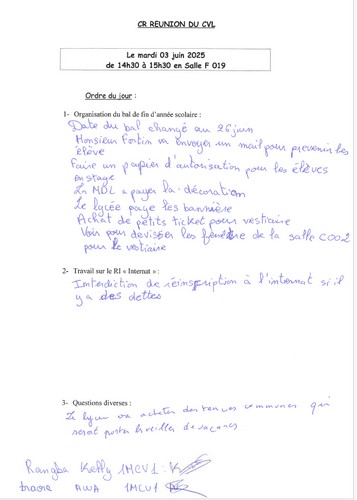 CR REUNION DU CVL
Le mardi 03 juin 2025
de 14h30 à 15h30 en Salle F 019
Ordre du jour :
1- Organisation du bal de fin d'année scolaire :
Date du bal changé au 26 juin
Monsieur Fortin va envoyer un mail pour prevenir les
élève
Faire un papier d'autorisation pour les élèves
en stage
La MDL a payer la décoration
Le lycée paye les bannière
Achat de petits ticket pour vestiaire
Voir pour devisser les fenêtre de la salle C002
pour le vestiaire
2- Travail sur le RI « Internat » :
Interdiction de réinscription à l'internat si il
y a des dettes
3- Questions diverses :
Le lycée va acheter des tenues communes qui
serait porter la veilles de vacances
Rangba Kelly 1MCV1 :
traore AWA 1MCV1